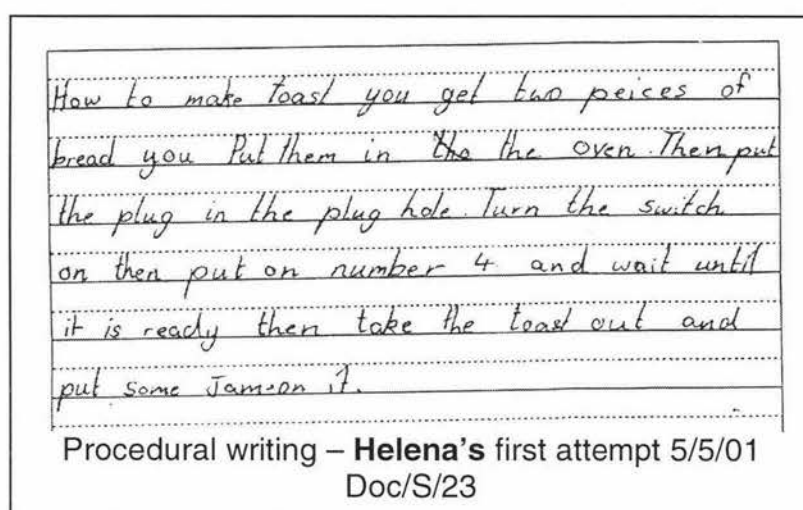 How to make toast you get two peices of
bread you Put them in the the oven. Then put
the plug in the plug hole. Turn the switch
on then put on number 4 and wait until
it is ready then take the toast out and
put some Jam on it.
Procedural writing – Helena's first attempt 5/5/01
Doc/S/23